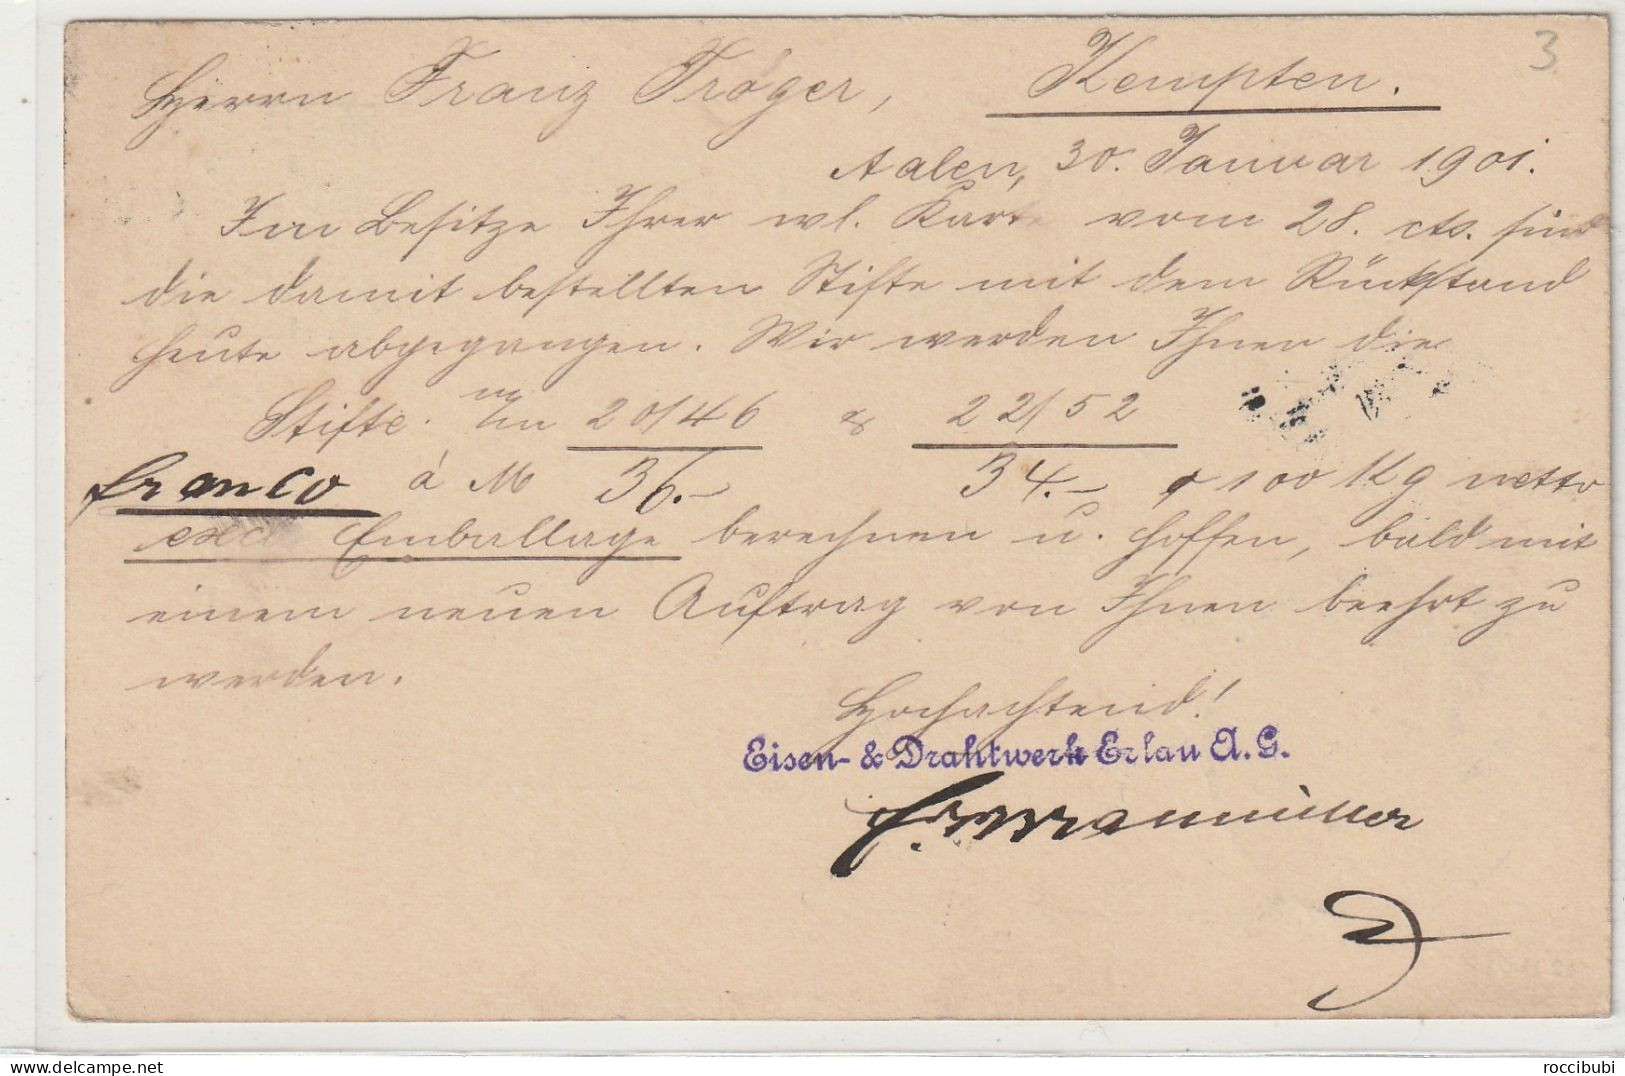 3
Herrn Franz Tröger, Kempten.
Aalen, 30. Januar 1901.
Im Besitze Ihrer wl. Karte vom 28. cts. sind
die damit bestellten Stifte mit dem Rückstand
heute abgegangen. Wir werden Ihnen die
Stifte m/m 20/46 & 22/52
franco à M 36.– 34.– 100 Kg netto
excl Emballage berechnen u. hoffen, bald mit
einem neuen Auftrag von Ihnen beehrt zu
werden.
Hochachtend!
Eisen- & Drahtwerk Erlau A.G.
roccibubi